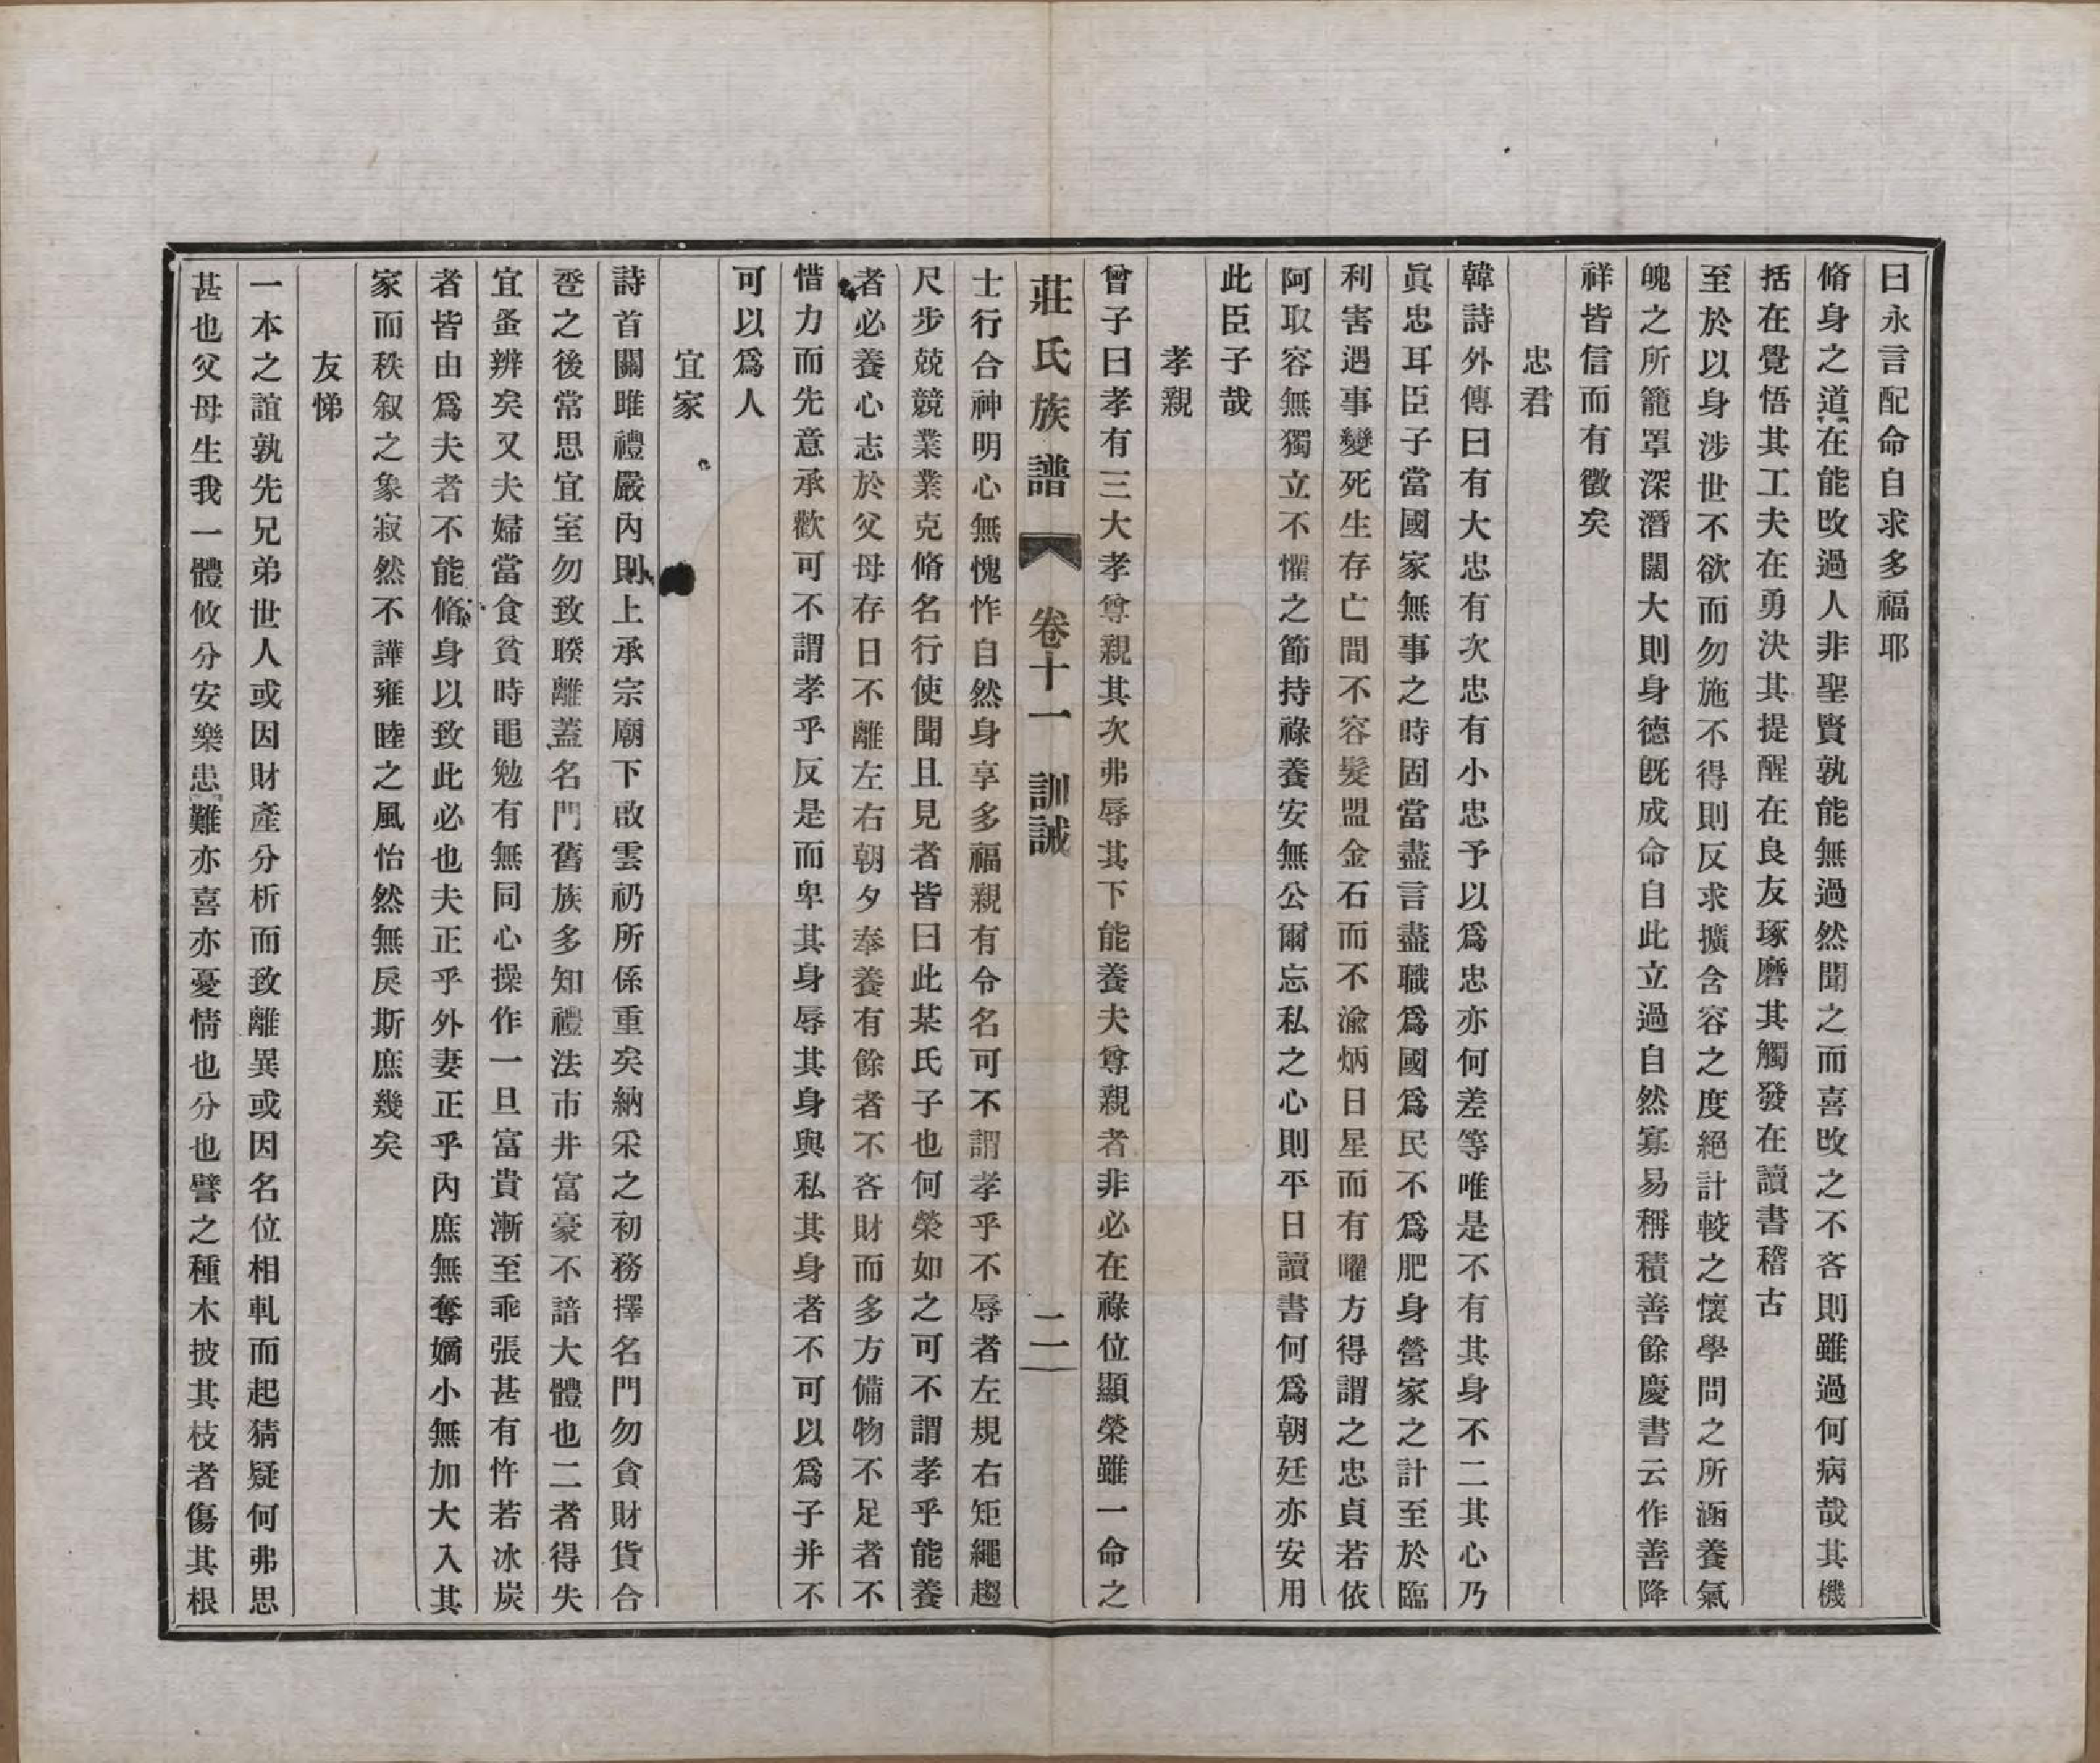 曰永言配命自求多福耶
脩身之道在能改過人非聖賢孰能無過然聞之而喜改之不吝則雖過何病哉其機
括在覺悟其工夫在勇決其提醒在良友琢磨其觸發在讀書稽古
至於以身涉世不欲而勿施不得則反求擴含容之度絕計較之懷學問之所涵養氣
魄之所籠罩深潛闊大則身德旣成命自此立過自然寡易稱積善餘慶書云作善降
祥皆信而有徵矣
忠君
韓詩外傳曰有大忠有次忠有小忠予以爲忠亦何差等唯是不有其身不二其心乃
眞忠耳臣子當國家無事之時固當盡言盡職爲國爲民不爲肥身營家之計至於臨
利害遇事變死生存亡間不容髮盟金石而不渝炳日星而有曜方得謂之忠貞若依
阿取容無獨立不懼之節持祿養安無公爾忘私之心則平日讀書何爲朝廷亦安用
此臣子哉
孝親
曾子曰孝有三大孝尊親其次弗辱其下能養夫尊親者非必在祿位顯榮雖一命之
莊氏族譜 卷十一 訓誡 二
士行合神明心無愧怍自然身享多福親有令名可不謂孝乎不辱者左規右矩繩趨
尺步兢兢業業克脩名行使聞且見者皆曰此某氏子也何榮如之可不謂孝乎能養
者必養心志於父母存日不離左右朝夕奉養有餘者不吝財而多方備物不足者不
惜力而先意承歡可不謂孝乎反是而卑其身辱其身與私其身者不可以爲子并不
可以爲人
宜家
詩首關雎禮嚴內則上承宗廟下啟雲礽所係重矣納采之初務擇名門勿貪財貨合
卺之後常思宜室勿致睽離蓋名門舊族多知禮法市井富豪不諳大體也二者得失
宜蚤辨矣又夫婦當食貧時黽勉有無同心操作一旦富貴漸至乖張甚有忤若冰炭
者皆由爲夫者不能脩身以致此必也夫正乎外妻正乎內庶無奪嫡小無加大入其
家而秩叙之象寂然不譁雍睦之風怡然無戾斯庶幾矣
友悌
一本之誼孰先兄弟世人或因財產分析而致離異或因名位相軋而起猜疑何弗思
甚也父母生我一體攸分安樂患難亦喜亦憂情也分也譬之種木披其枝者傷其根